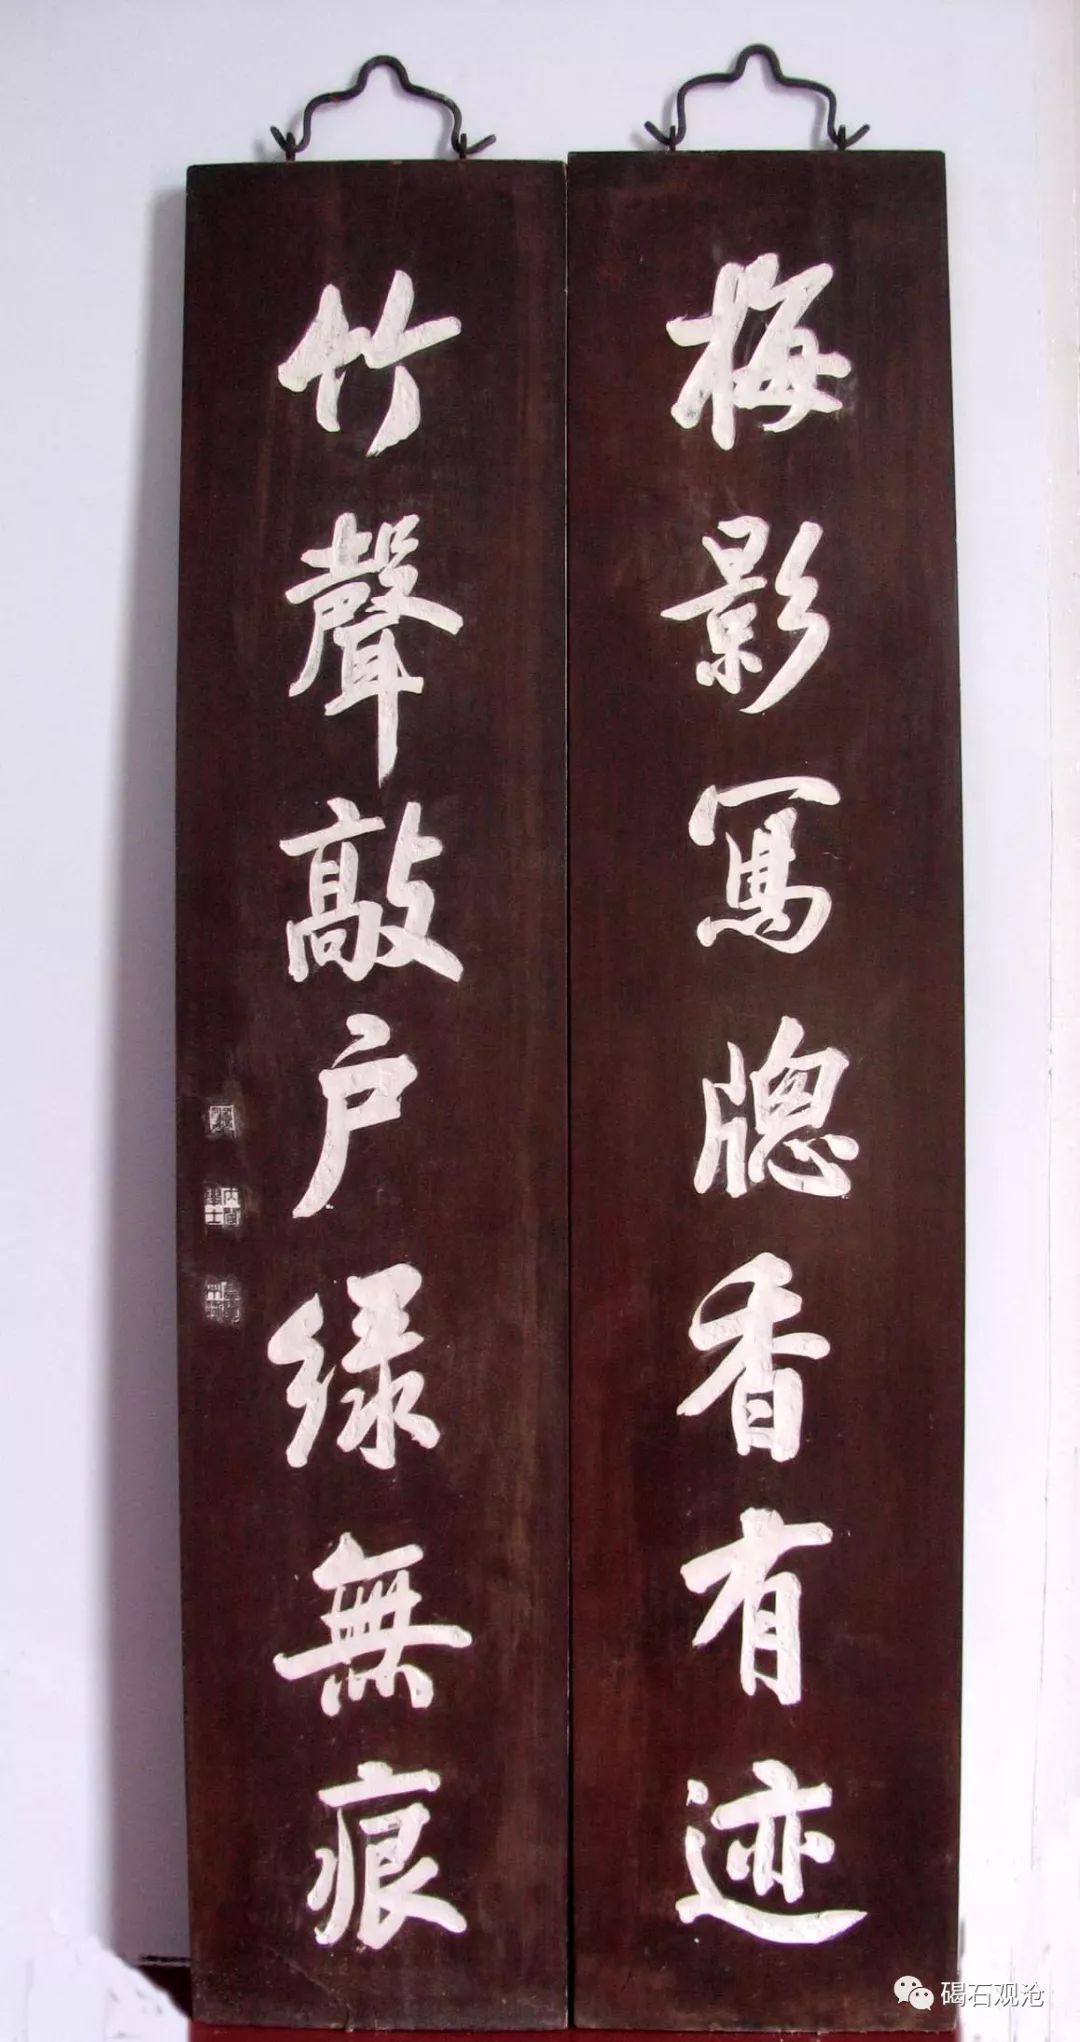 梅影冩牕香有迹
竹聲敲户緑無痕
碣石观沧